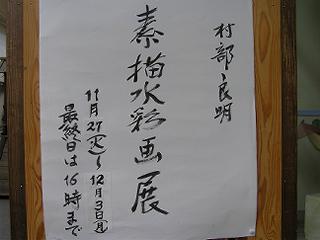 村部良明
素描水彩画展
11月27(火)～12月3日(月)
最終日は16時まで